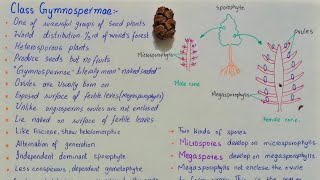 Class Gymnospermae:-
One of successful groups of seed plants
World distribution 1/3rd of world's forest
Heterosporous plants
Produce seeds but no fruits
"Gymnospermae" literally mean "naked seeded"
Ovules are usually born on
Exposed surface of fertile leaves (Megasporophylls)
Unlike angiosperms ovules are not enclosed
Lie naked on surface of fertile leaves
Like Filicinae, show heteromorphic
Alternation of generation
Independent dominant sporophyte
Less conspicuous, dependent gametophyte
sporophyte
Ovules
Microsporophylls
Male cone
Megasporophylls
Female cone
Two kinds of spores
Microspores develop on microsporophylls
Megaspores develop on megasporophylls
Megasporophylls not enclose the ovule